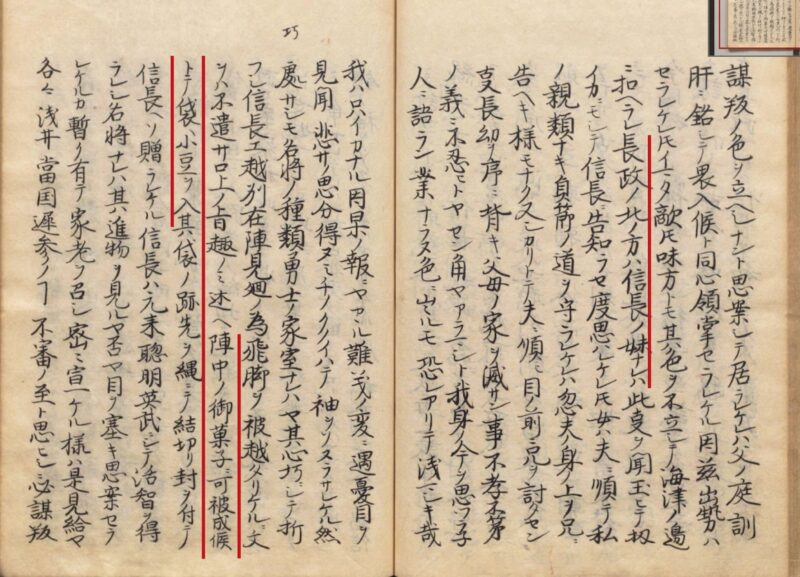 謀叛ノ色ヲ立ヘシナント思案シテ居ラレケレハ父ノ庭訓
肝ニ銘シテ畏入候ト同心領掌セラレケル因茲出勢ハ
セラレケレ𪜈イマタ敵𪜈味方トモ其色ヲ不立シテ海津ノ邊
ニ扣ヘラレ長政ノ北ノ方ハ信長ノ妹ナレハ此支ヲ聞玉ヒテ扨
イカニモシテ信長ニ告知ラセ度思ハレケレ𪜈女ハ夫ニ順テ私
ノ親類ナキ貞節ノ道ヲ守ラレケレハ忽夫ノ身ノ上ヲ兄ニ
告ヘキ様モナク又シカリトテ夫ニ順ヒ目ノ前ニ兄ヲ討タセン
支長幼ノ序ニ背キ父母ノ家ヲ滅サン事不孝不第
ノ義ニ不忍トヤセン角ヤアラマシト我身ノ今ヲ思フ子
人ニ語ラン業ナラス色ニ出ルモ恐レアリテ浅マシキ哉
我ハ只イカナル因果ノ報ニヤカヽル難義ノ変ニ遇憂目ヲ
見聞ク悲サノ思分得ヌミチノクノイハテ袖ヲソヌラサレケル然
処サシモ名将ノ種類勇士ノ家室ナレハヤ其心巧ニシテ折
巧
フシ信長エ越別在陣見廻ノ為飛脚ヲ被越タリケルニ文
ヲハ不遣サ口上ノ旨趣ノミ述ヘ陣中ノ御菓子ニ可被成候
トテ袋ニ小豆ヲ入其袋ノ跡先ヲ縄ニテ結切リ封ヲ付テ
信長ヘソ贈ラレケル信長ハ元来聡明英武ニシテ活智ヲ得
ラレシ名将ナレハ其進物ヲ見ルヤ否ヤ目ヲ塞キ思案セラ
レケルカ暫ク有テ家老ヲ召シ密ニ宣ヒケル様ハ是見給ヘヤ
各々浅井當国遅参ノヿ不審ノ至ト思ヒシニ必謀叛